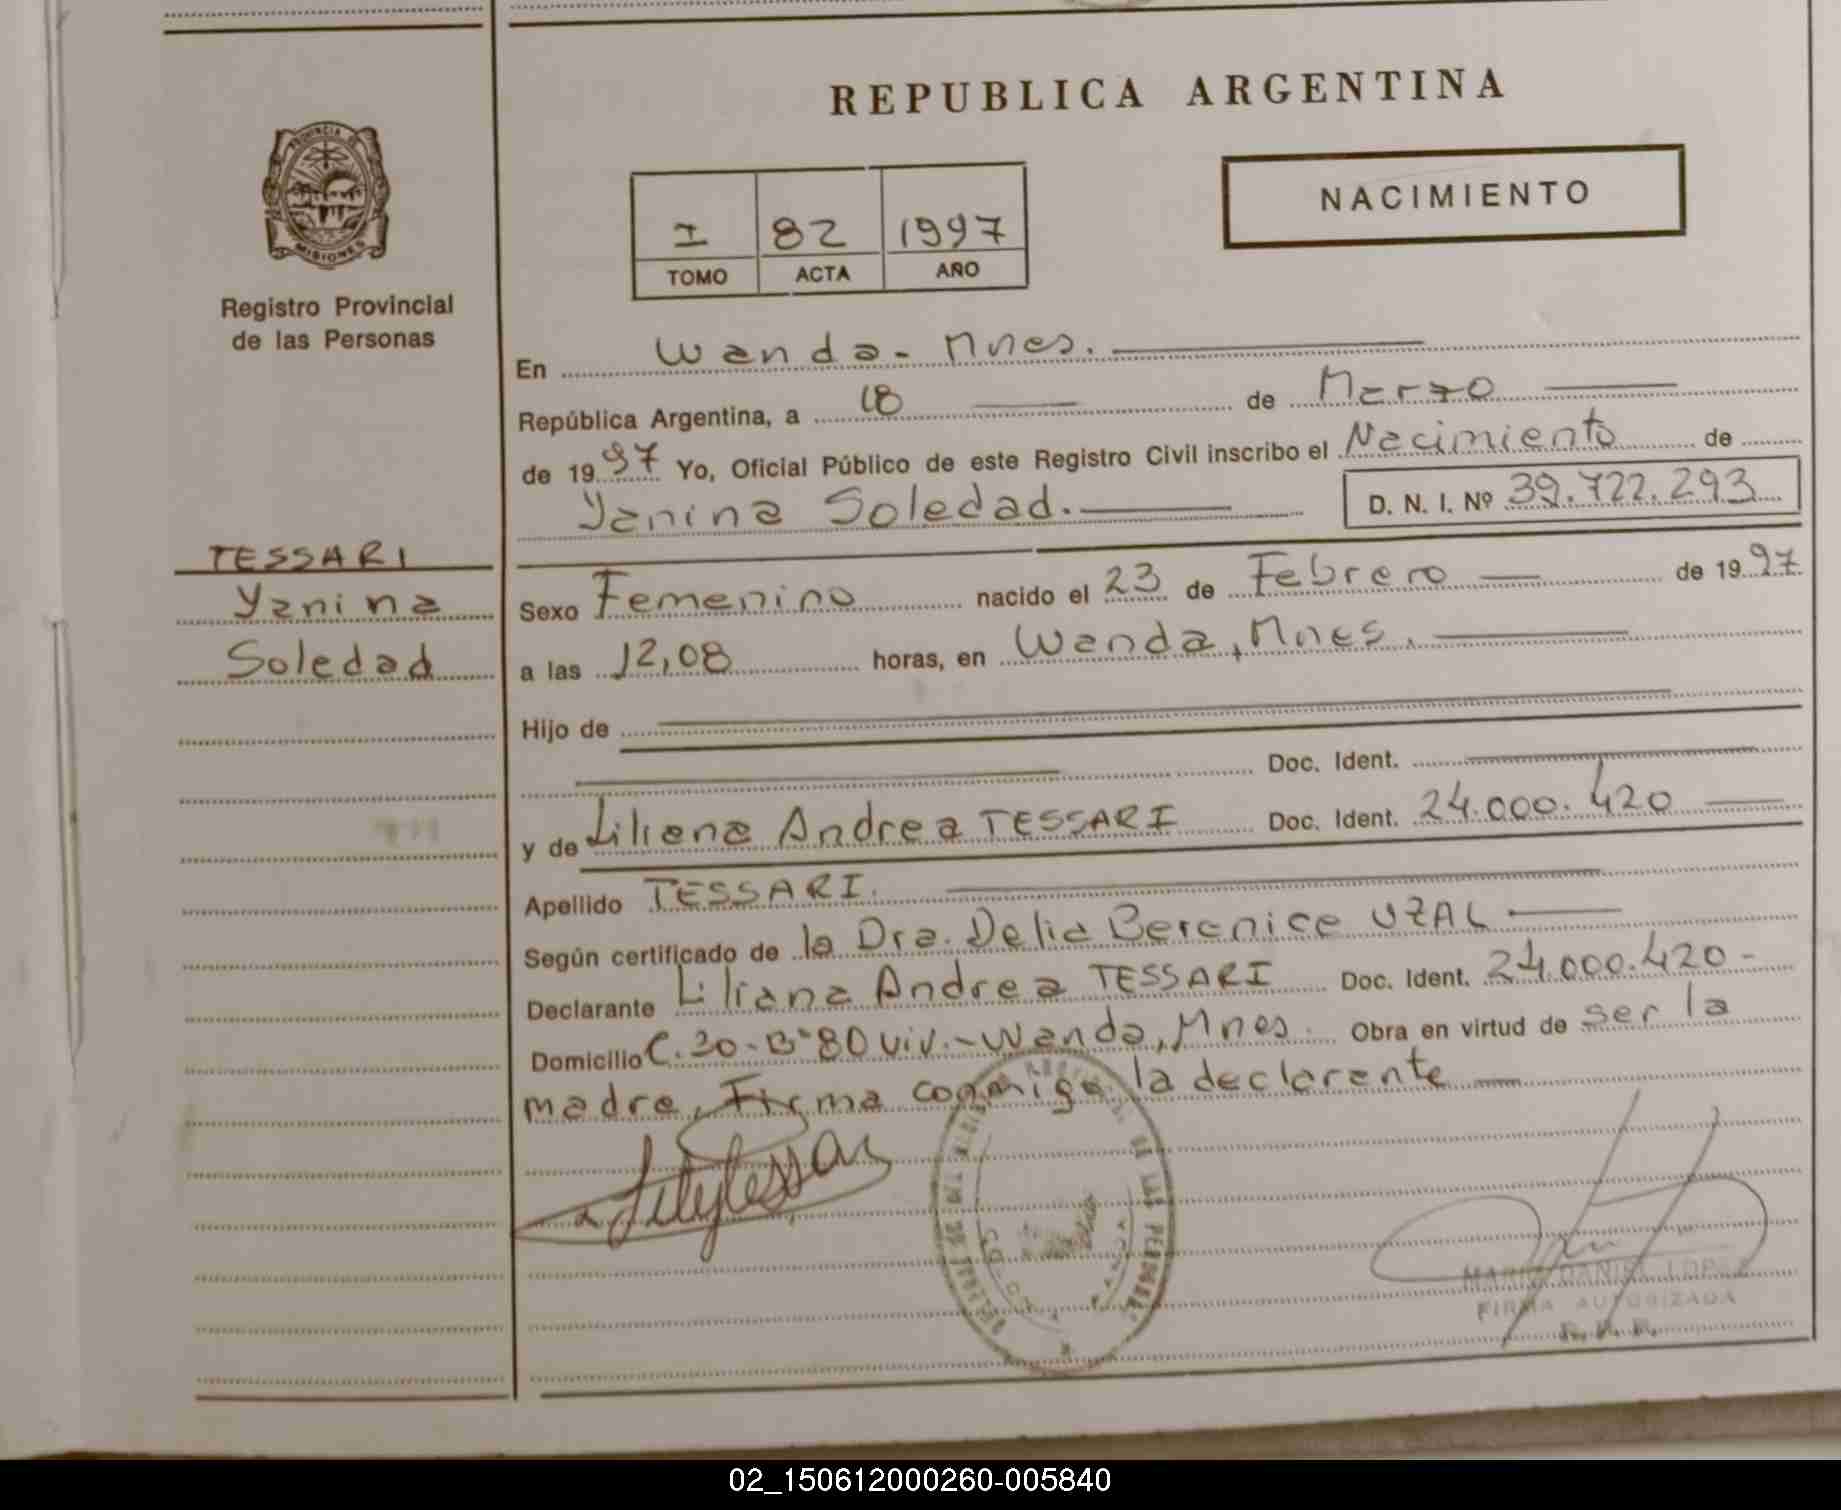 REPUBLICA ARGENTINA
PROVINCIA DE
MISIONES
Registro Provincial
de las Personas
NACIMIENTO
I 82 1997
TOMO ACTA AÑO
En Wanda - Mnes.
República Argentina, a 18 de Marzo
de 1997 Yo, Oficial Público de este Registro Civil inscribo el Nacimiento de
Yanina Soledad. D. N. I. Nº 39.722.293
TESSARI
Yanina
Soledad
Sexo Femenino nacido el 23 de Febrero de 1997
a las 12,08 horas, en Wanda, Mnes.
Hijo de
Doc. Ident.
y de Liliana Andrea TESSARI Doc. Ident. 24.000.420
Apellido TESSARI.
Según certificado de la Dra. Delia Berenice UZAL
Declarante Liliana Andrea TESSARI Doc. Ident. 24.000.420-
Domicilio C. 30-B-80 viv.-Wanda, Mnes. Obra en virtud de ser la
madre, Firma conmigo la declarante
DE LAS PERSONAS
MARIO DANIEL LOPEZ
FIRMA AUTORIZADA
R. P. P.
02_150612000260-005840